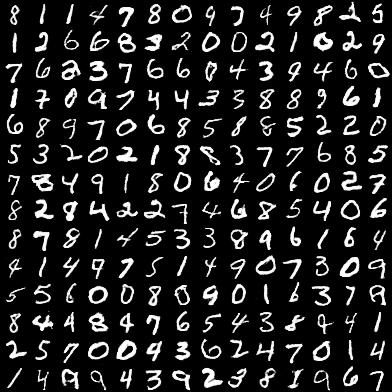 8 1 1 4 7 8 0 9 7 4 9 8 2 5
1 2 6 6 8 3 2 0 0 2 1 0 2 9
7 6 2 3 7 6 6 0 4 3 9 4 6 0
1 7 0 9 7 4 4 3 3 8 8 9 6 1
6 8 9 7 0 6 8 5 8 8 5 2 2 0
5 3 2 0 2 1 8 8 3 7 7 6 8 5
7 8 4 9 1 8 0 6 4 0 6 0 2 7
8 2 8 4 2 2 7 4 6 8 5 4 0 6
8 7 8 1 4 5 3 3 8 9 6 1 6 4
4 1 4 9 7 5 1 4 9 0 7 3 0 9
5 5 6 0 0 8 0 9 0 1 6 3 7 8
8 4 4 8 4 7 6 5 4 3 8 9 4 1
2 5 7 0 0 4 3 6 2 4 7 0 1 4
1 4 8 9 4 3 9 2 3 8 1 9 7 6